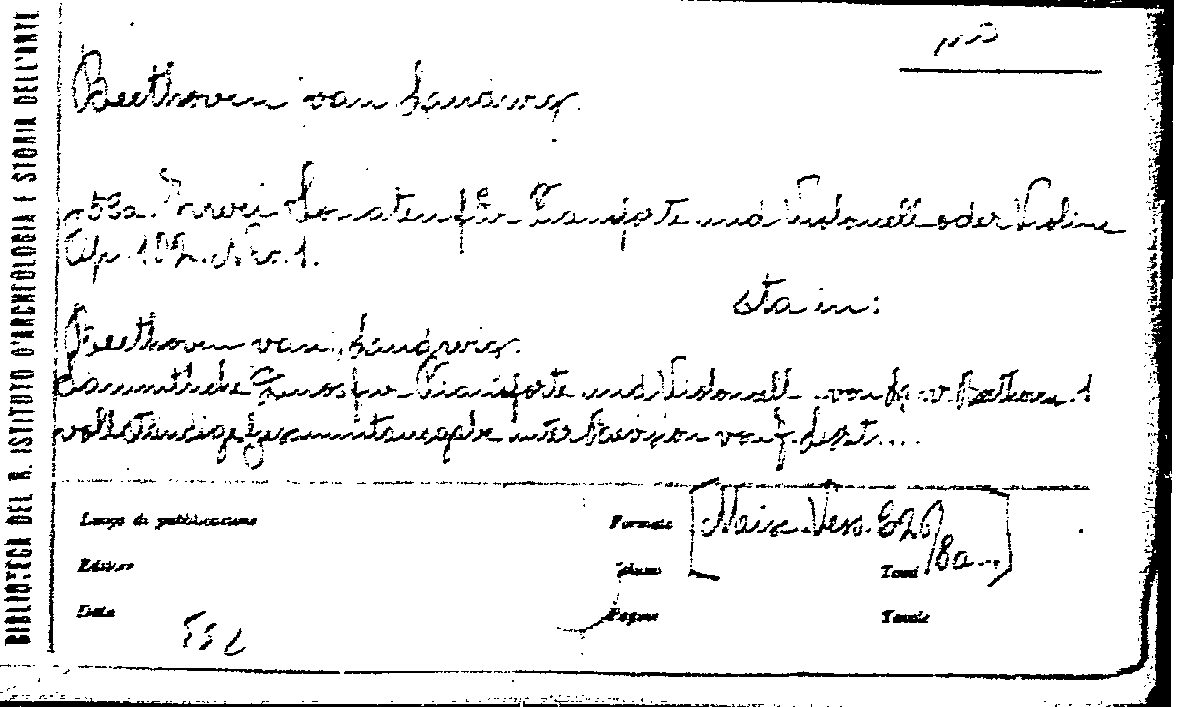 BIBLIOTECA DEL R. ISTITUTO D'ARCHEOLOGIA E STORIA DELL'ARTE
Beethoven van Ludwig.
Zwei Sonaten für Pianoforte und Violoncell oder Violine
Op. 102. Nro. 1.
sta in:
Beethoven van, Ludwig.
Sammtliche Pianoforte und Violoncell von v. Bethoven
vollständige Gesammtausgabe unter Revision von F. Liszt....
Luogo di pubblicazione
Formato
Editore
Volume
Tomi
Data
Pagine
Tavole